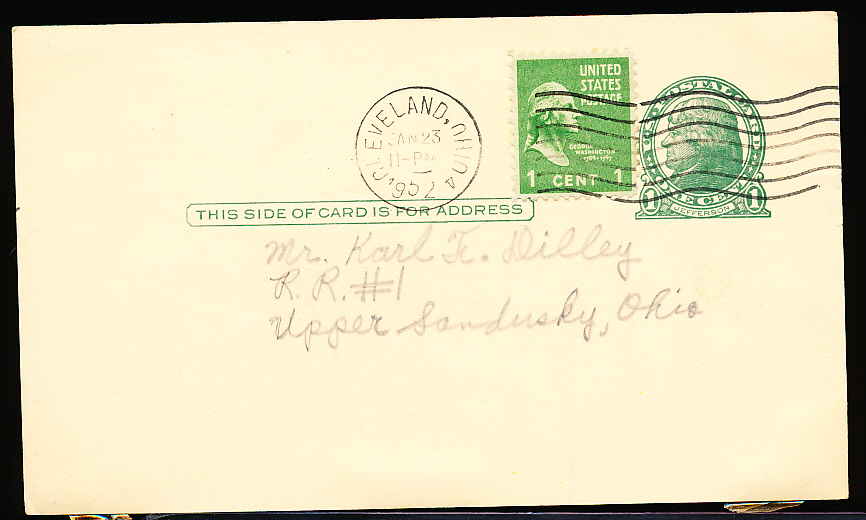 UNITED
STATES
POSTAGE
GEORGE
WASHINGTON
1789-1797
1 CENT 1
CLEVELAND, OHIO 4
JAN 23
11-PM
1952
POSTAL CARD
1 JEFFERSON 1
THIS SIDE OF CARD IS FOR ADDRESS
Mr. Karl F. Dilley
R. R. #1
Upper Sandusky, Ohio